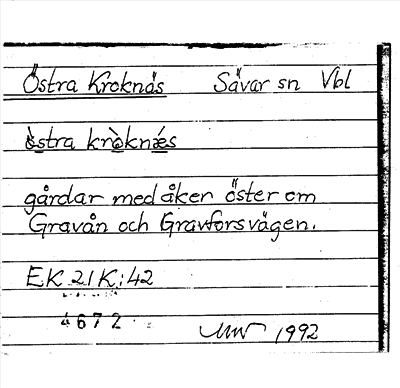 Östra Kroknäs Sävar sn Vbl
östra kròknæs
gårdar med åker öster om
Gravån och Gravforsvägen.
EK 21K:42
4672
1992